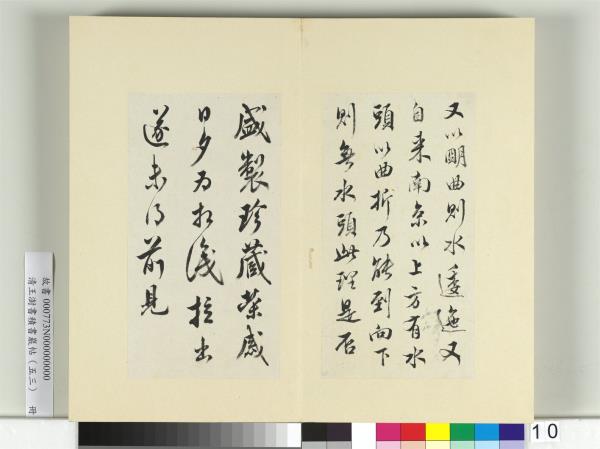 又以明曲則水逶迤又
自来南京以上方有水
頭以曲折乃能到向下
則無水頭此理是否
盛製珍藏榮感
日夕为扵出
遂未得前見
故書 000773N000000000
清王澍書積書巖帖(五三) 冊
10